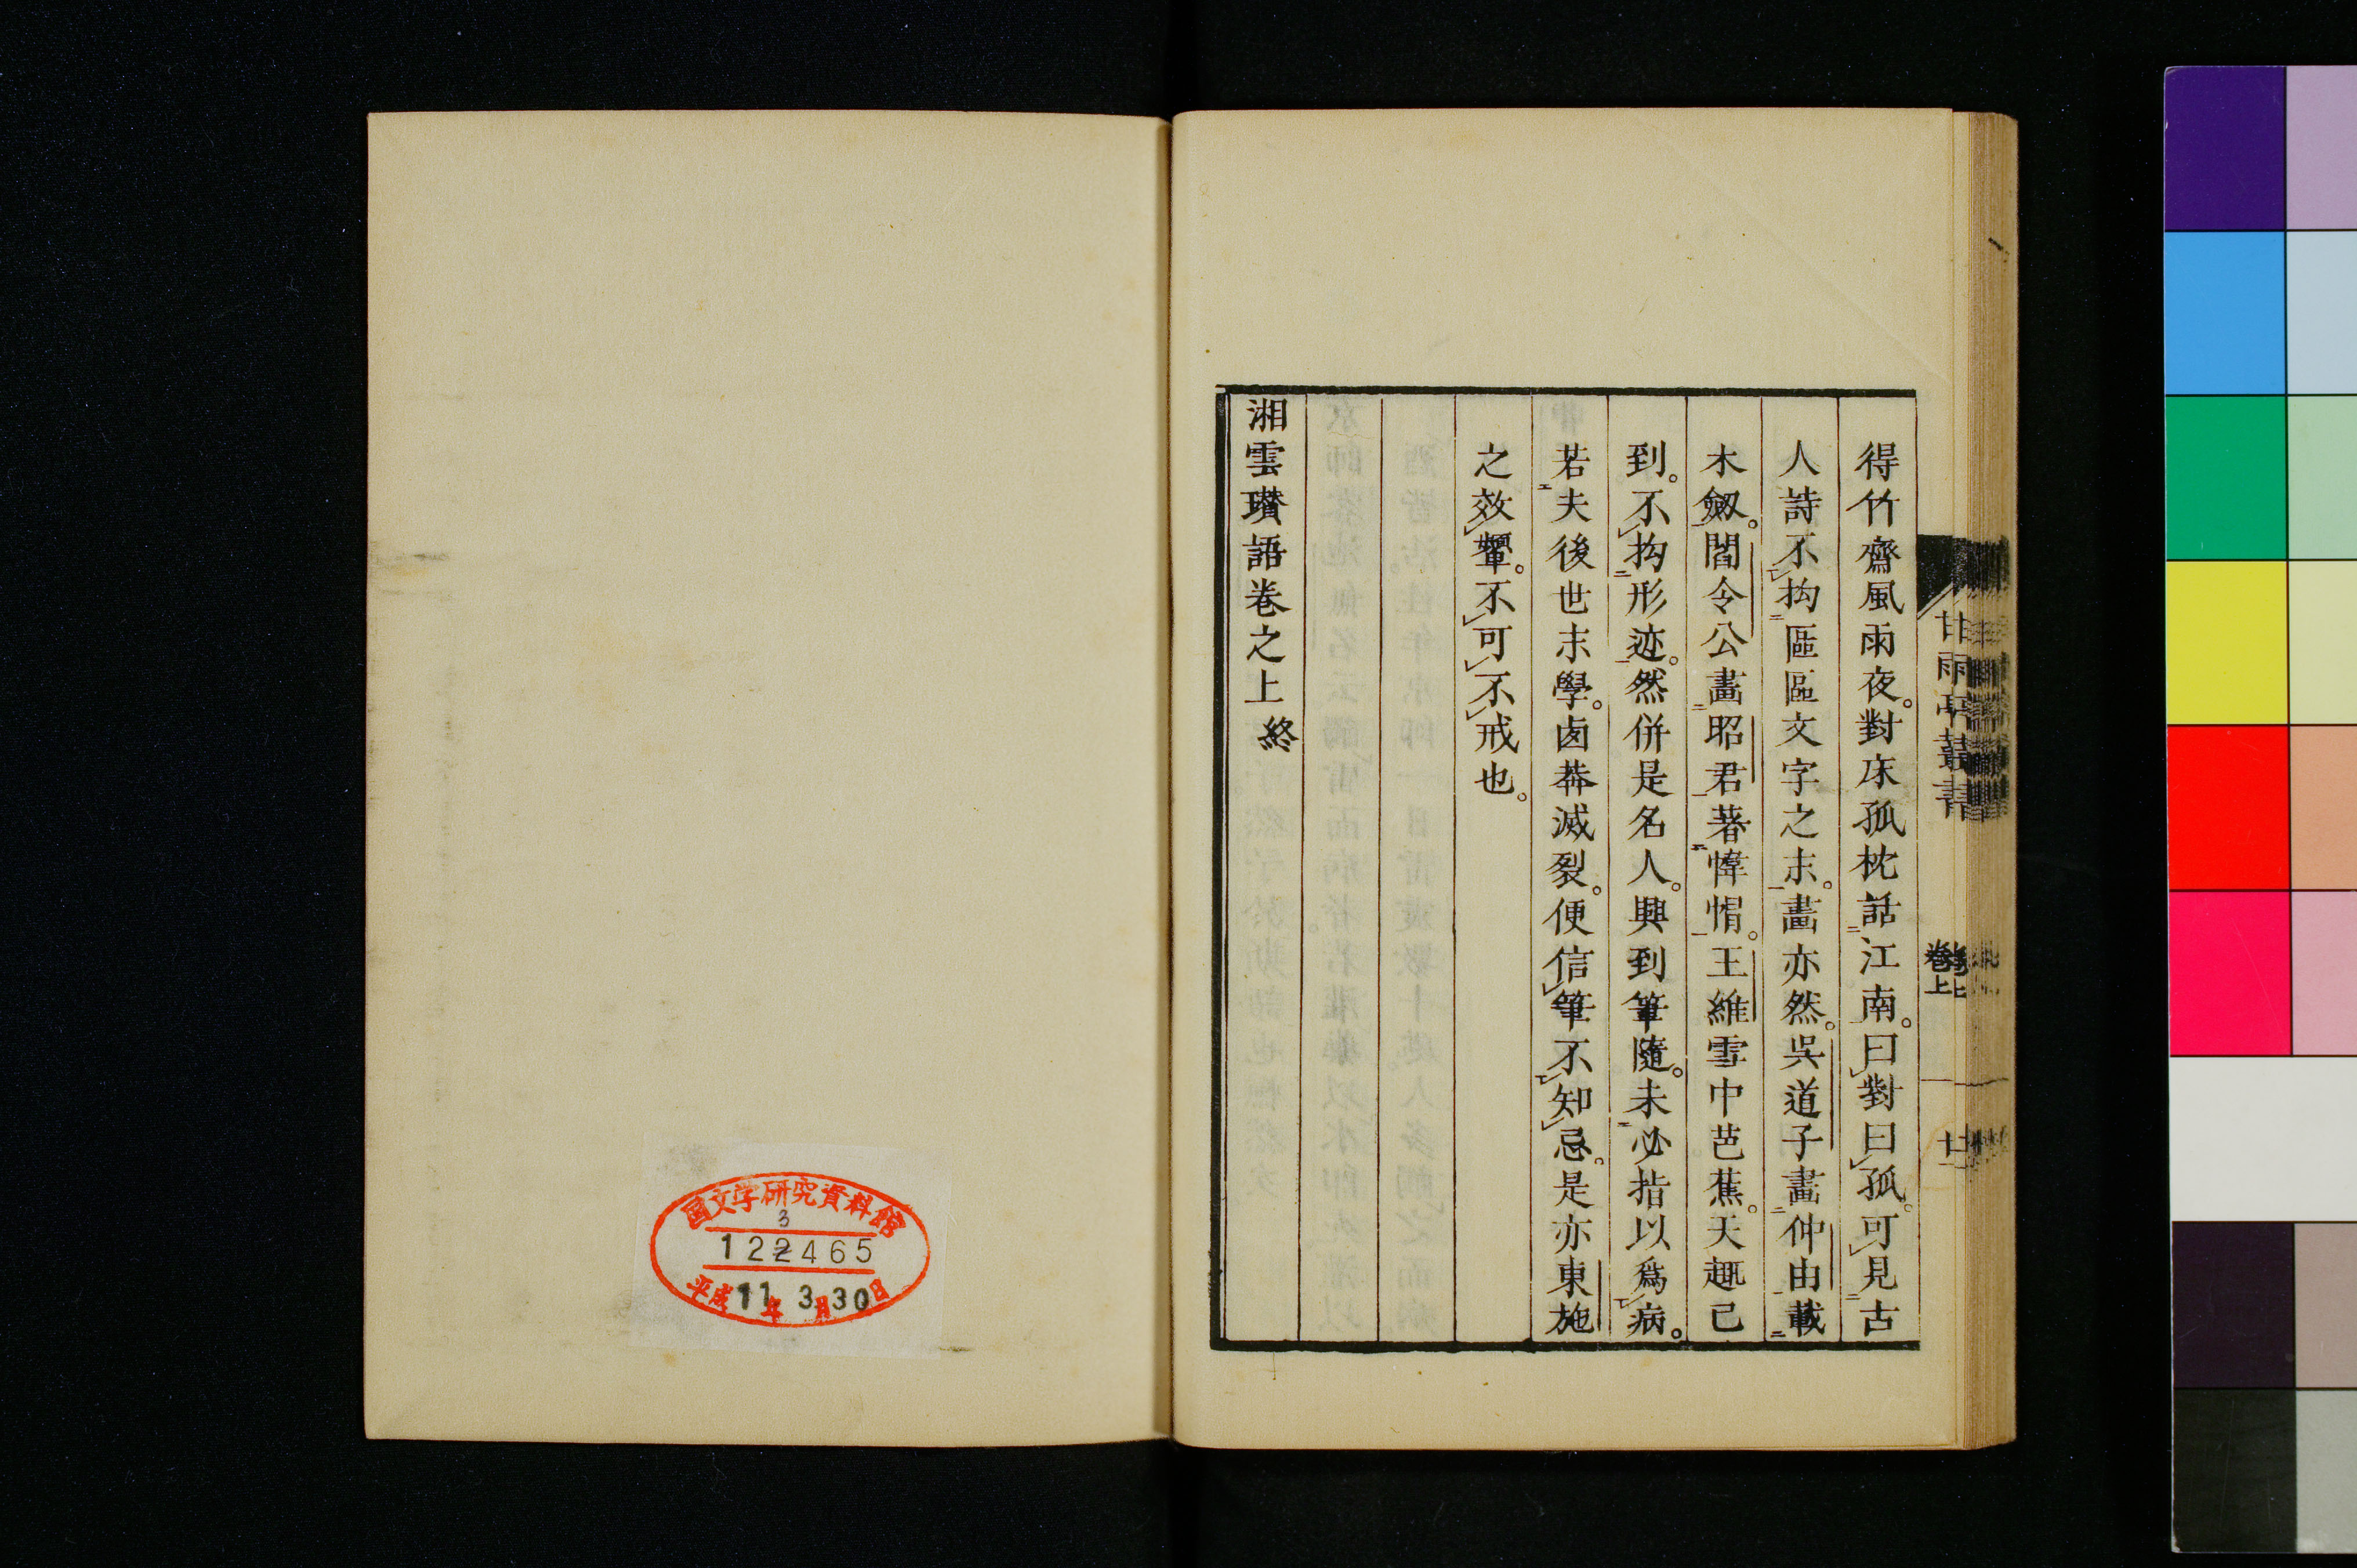 得竹齋風雨夜。對床孤枕話江南。曰對曰孤。可見古
人詩不拘區區文字之末。畫亦然。吳道子畫仲由載
木劒。閻令公畫昭君著幃帽。王維雪中芭蕉。天趣已
到。不拘形迹。然併是名人。興到筆隨。未必指以爲病。
若夫後世末學。鹵莽滅裂。便信筆不知忌。是亦東施
之效顰。不可不戒也。
湘雲瓚語卷之上 終
甘雨亭叢書
卷上
国文学研究資料館
3
122465
平成11年3月30日